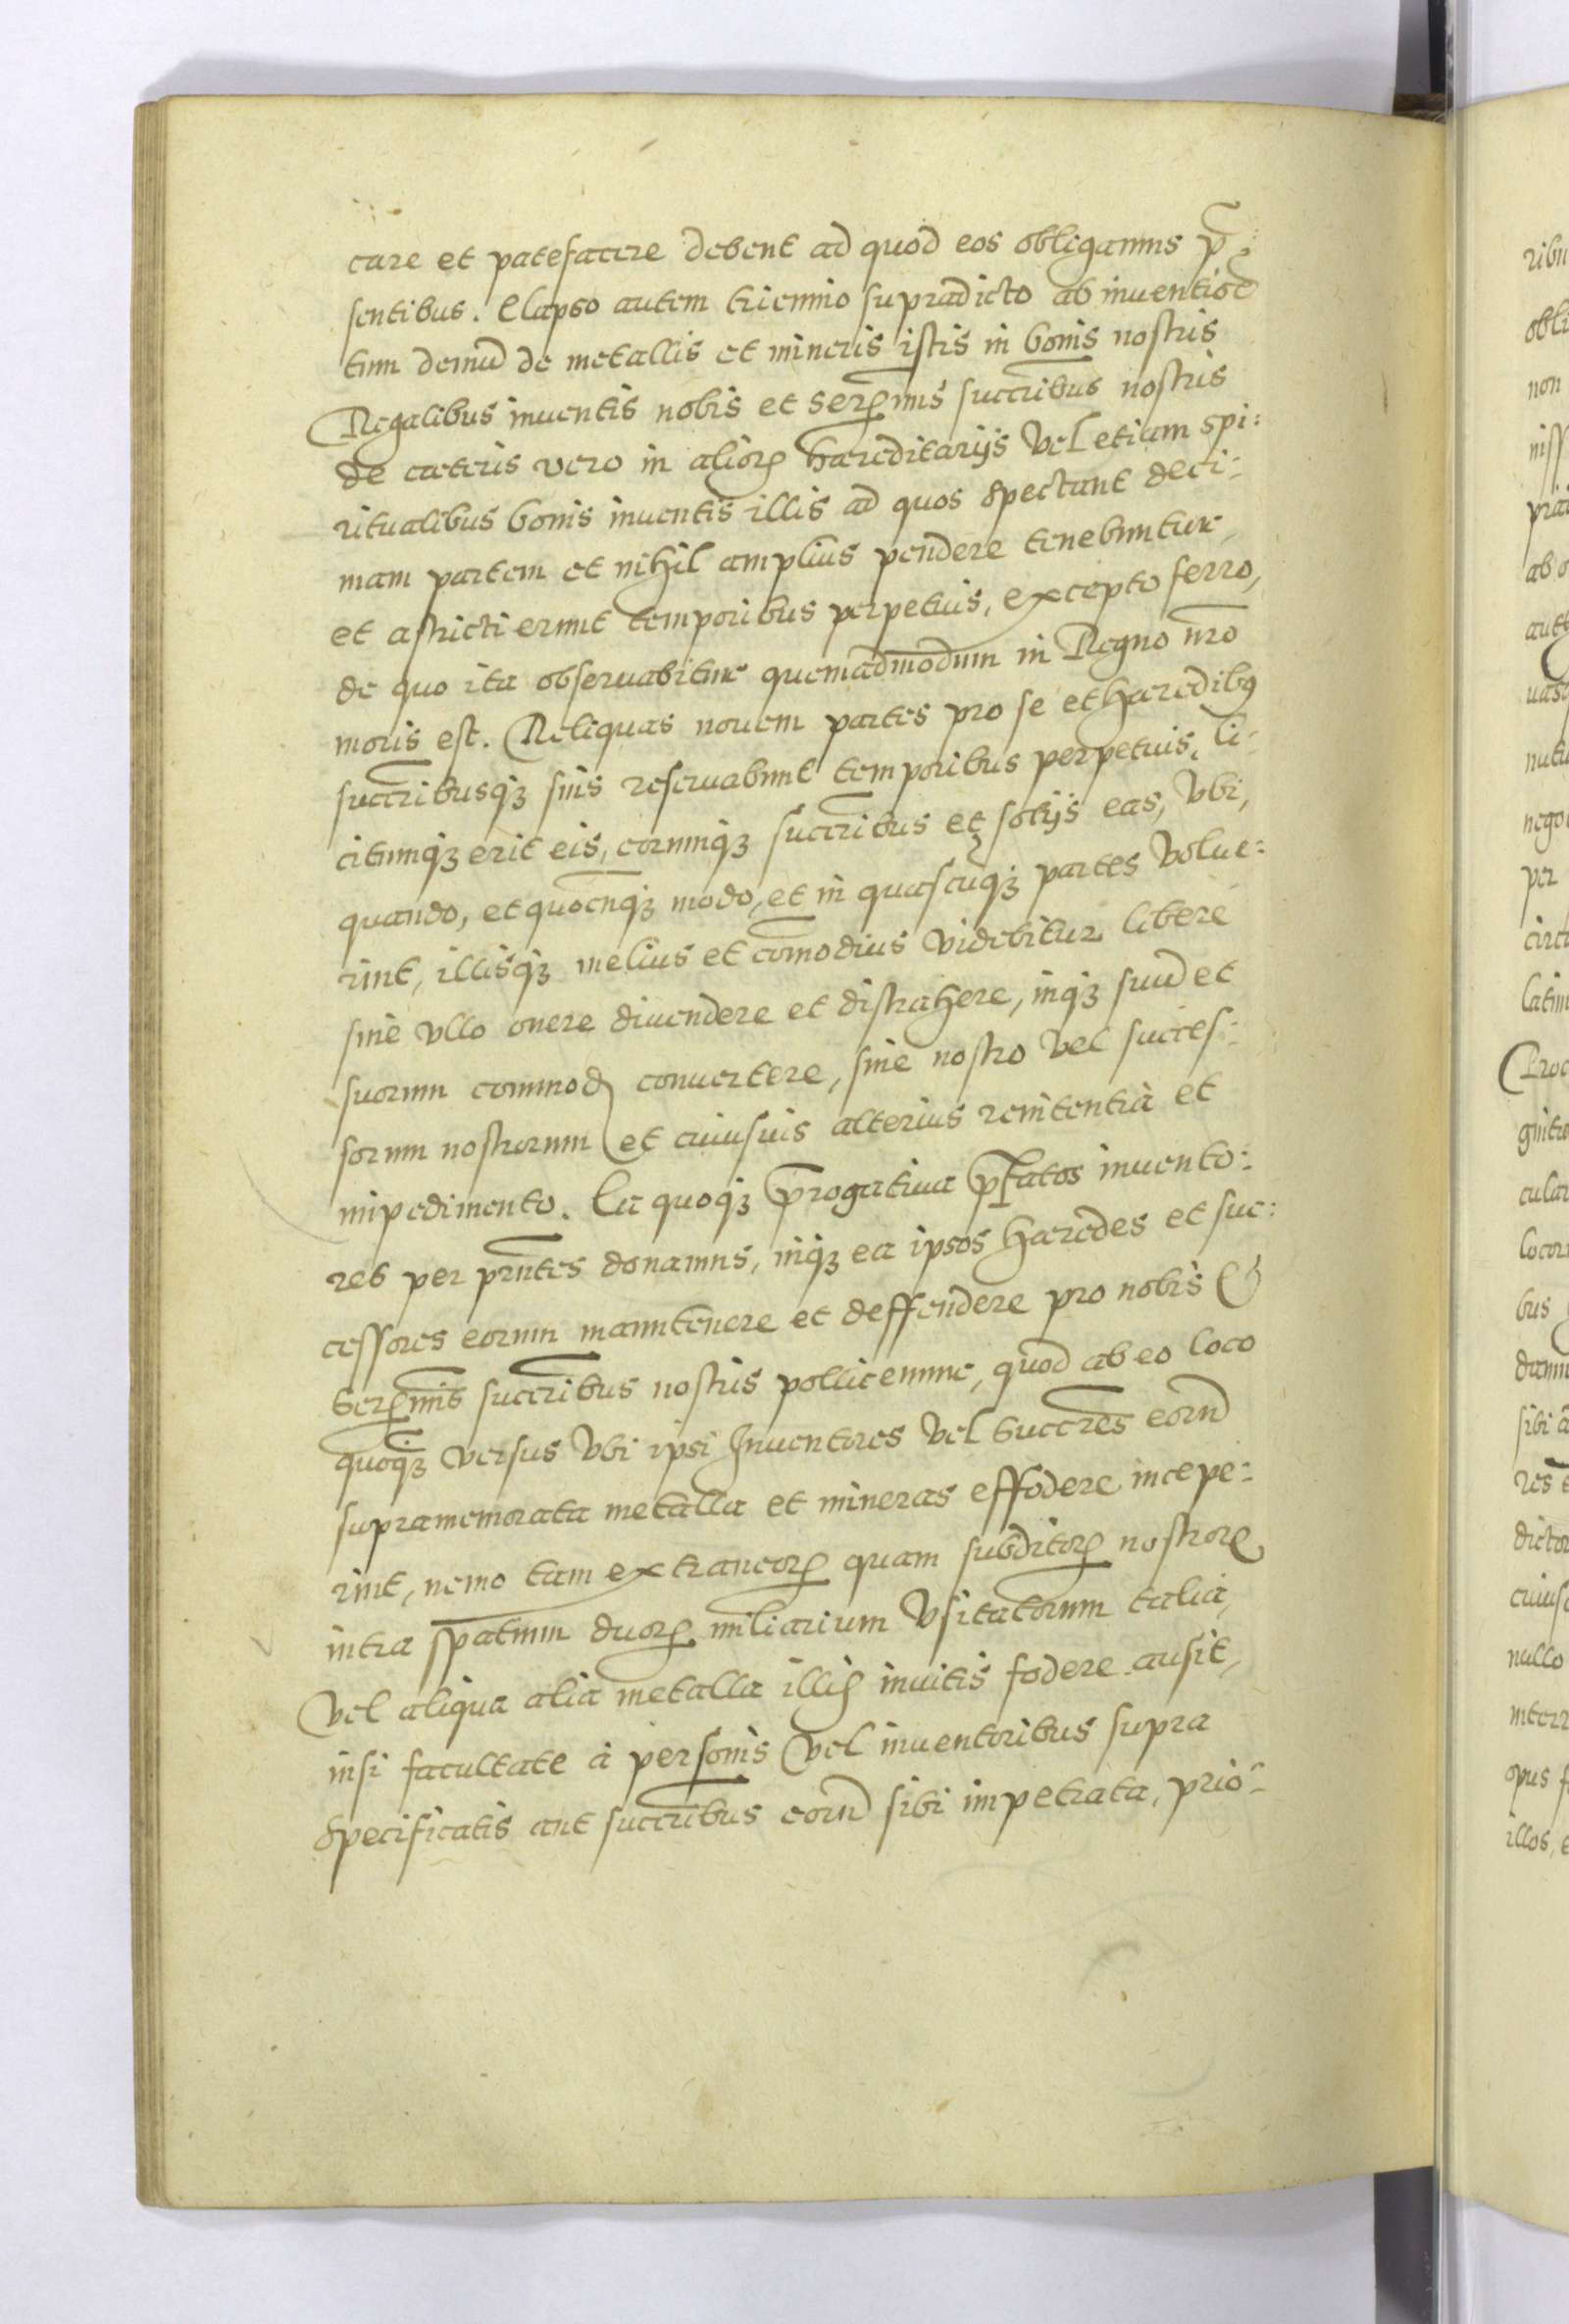 care et patefacere debent ad quod eos obligamus p̃:
sentibus. Elapso autem triennio supradicto ab inventiōe
tum demū de metallis et mineris istis in bonis nostris
Regalibus inventis nobis et Serꝫmis succribus nostris
de cæteris vero in alioꝝ hæreditarijs vel etiam spi:
ritualibus bonis inventis illis ad quos spectant deci:
mam partem et nihil amplius pendere tenebuntur,
et astricti erunt temporibus perpetuis, excepto ferro,
de quo ita observabitur quemadmodum in Regno nr̃o
moris est. Reliquas novem partes pro se et hæredibꝰ
succribusqꝫ suis reservabunt temporibus perpetuis, li:
citumqꝫ erit eis, eorumqꝫ succribus et socijs eas, Vbi,
quando, et quocūqꝫ modo, et in quascūqꝫ partes volue:
rint, illisqꝫ melius et com̃odius videbitur libere
sine vllo onere divendere et distrahere, inqꝫ suū et
suorum commodū convertere, sine nostro vel succes:
sorum nostrorum et cuiusvis alterius renitentia et
impedimento. Ea quoqꝫ p̃rogativa p̃fatos invento:
res per pr̃ntes donamus, inqꝫ ea ipsos hæredes et suc:
cessores eorum manutenere et deffendere pro nobis &
Serꝫmis succribus nostris pollicemur, quod ab eo loco
quoqꝫ versus Vbi ipsi Inventores vel Succres eorū
supramemorata metalla et mineras effodere incepe:
rint, nemo tam extraneoꝝ quam subditoꝝ nostroꝝ
intra spatium duoꝝ miliarium Vsitatorum talia,
vel aliqua alia metalla illis invitis fodere ausit,
nisi facultate à personis vel inventoribus supra
specificatis aut succribus eorū sibi impetrata, prio:
ribu
obli
non
niss
ab o
nego
per
circ
latin
cular
locor
bus
sibi a
res
dictor
nullo
interr
opus f
illos, e